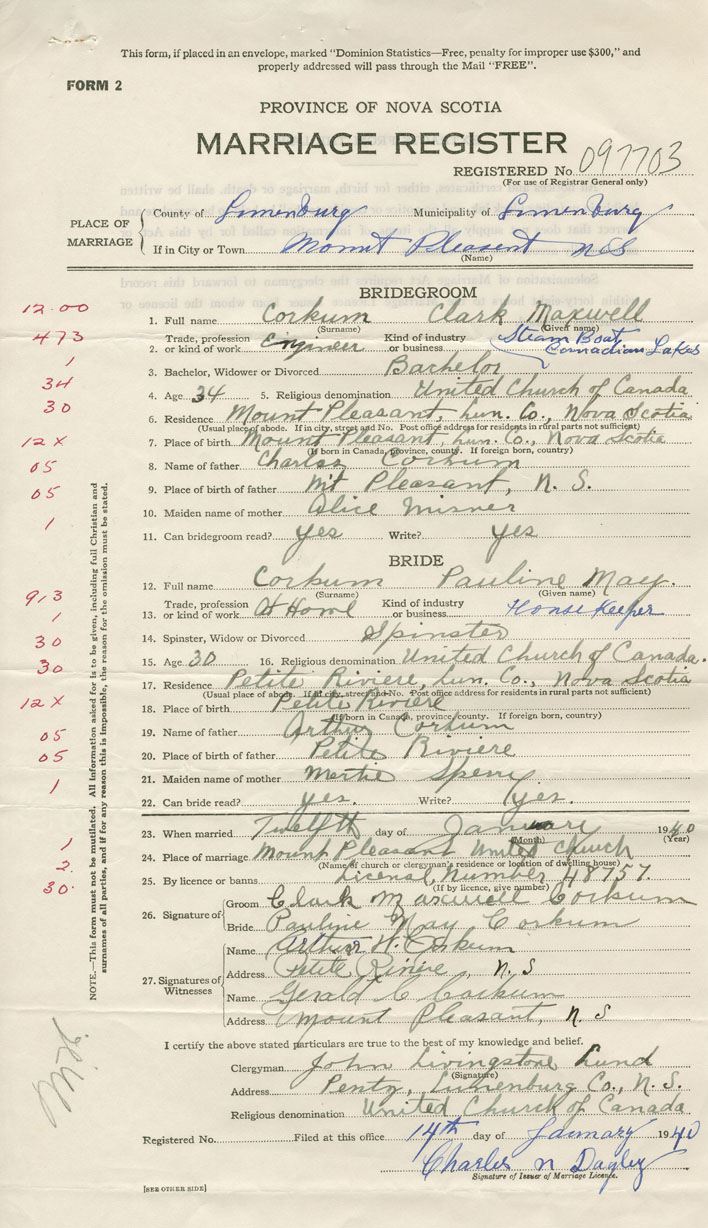 This form, if placed in an envelope, marked "Dominion Statistics—Free, penalty for improper use $300," and
properly addressed will pass through the Mail "FREE".
FORM 2
PROVINCE OF NOVA SCOTIA
MARRIAGE REGISTER
REGISTERED No. 097703
(For use of Registrar General only)
PLACE OF MARRIAGE
County of Lunenburg Municipality of Lunenburg
If in City or Town Mount Pleasent N S
(Name)
BRIDEGROOM
12.00
1. Full name Corkum Clark Maxwell
(Surname) (Given name)
473
2. Trade, profession or kind of work Engineer Kind of industry or business Steam Boat Canadian Lakes
1
3. Bachelor, Widower or Divorced Bachelor
34
4. Age 34 5. Religious denomination United Church of Canada
30
6. Residence Mount Pleasant, Lun. Co., Nova Scotia
(Usual place of abode. If in city, street and No. Post office address for residents in rural parts not sufficient)
12 X
7. Place of birth Mount Pleasant, Lun. Co., Nova Scotia
(If born in Canada, province, county. If foreign born, country)
05
8. Name of father Charles Corkum
05
9. Place of birth of father Mt Pleasant, N. S.
10. Maiden name of mother Alice Misner
1
11. Can bridegroom read? yes Write? yes
BRIDE
12. Full name Corkum Pauline May.
(Surname) (Given name)
913
13. Trade, profession or kind of work At Home Kind of industry or business House Keeper
1
14. Spinster, Widow or Divorced Spinster
30
15. Age 30 16. Religious denomination United Church of Canada.
30
17. Residence Petite Riviere, Lun. Co., Nova Scotia
(Usual place of abode. If in city, street and No. Post office address for residents in rural parts not sufficient)
12 X
18. Place of birth Petite Riviere
(If born in Canada, province, county. If foreign born, country)
05
19. Name of father Arthur Corkum
05
20. Place of birth of father Petite Riviere
21. Maiden name of mother Mertie Sperry
1
22. Can bride read? yes. Write? yes.
23. When married Twelfth day of January 1940
(Month) (Year)
1
24. Place of marriage Mount Pleasant United Church
(Name of church or clergyman's residence or location of dwelling house)
2
25. By licence or banns License, Number 48757.
(If by licence, give number)
30.
26. Signature of
Groom Clark Maxwell Corkum
Bride Pauline May Corkum
27. Signatures of Witnesses
Name Arthur W. Corkum
Address Petite Riviere, N. S
Name Gerald C Corkum
Address Mount Pleasant, N. S
I certify the above stated particulars are true to the best of my knowledge and belief.
Clergyman John Livingstone Lund
(Signature)
Address Pentz, Lunenburg Co., N. S.
Religious denomination United Church of Canada
Registered No. Filed at this office 14th day of January 1940
Charles N Dagley
Signature of Issuer of Marriage Licence.
[SEE OTHER SIDE]
NOTE.—This form must not be mutilated. All information asked for is to be given, including full Christian and
surnames of all parties, and if for any reason this is impossible, the reason for the omission must be stated.